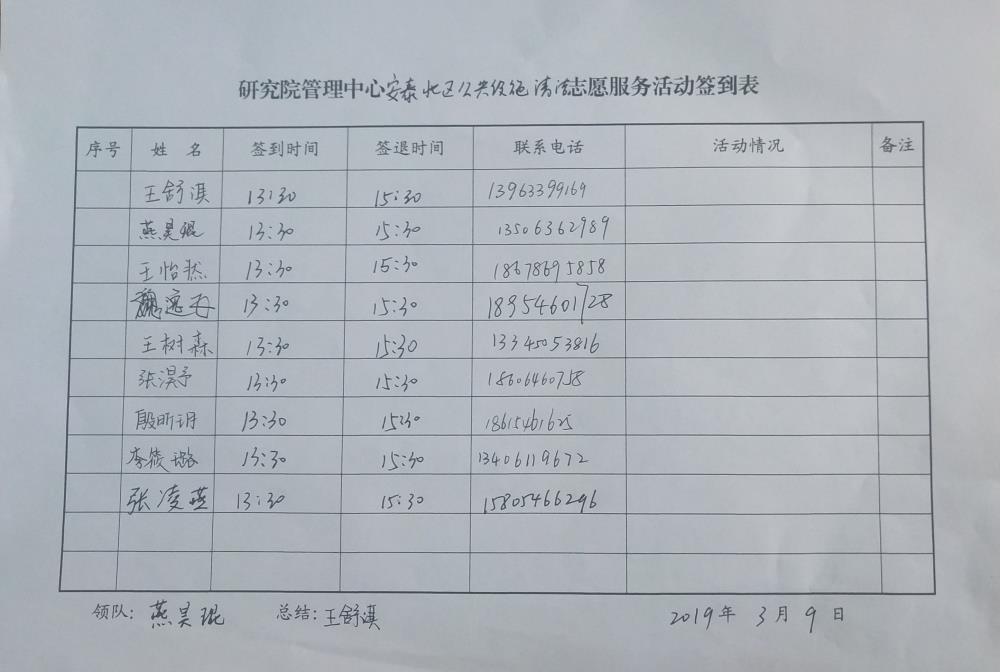 研究院管理中心安泰北区公共设施清洁志愿服务活动签到表
序号 姓 名 签到时间 签退时间 联系电话 活动情况 备注
王舒淇 13:30 15:30 13963399169
燕昊琨 13:30 15:30 13506362989
王怡然 13:30 15:30 18678695858
魏 13:30 15:30 18954601728
王树森 13:30 15:30 13345053816
张淏予 13:30 15:30 18606460758
殷昕玥 13:30 15:30 18615461625
李筱璐 13:30 15:30 13406119672
张凌燕 13:30 15:30 15805466296
领队: 燕昊琨 总结: 王舒淇 2019年 3月9日